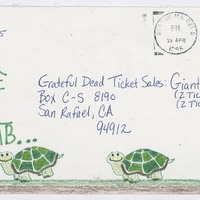 PM
15 APR
Grateful Dead Ticket Sales: Giant
Box C-S 8190
San Rafael, CA
94912
(2 Tic
(2 Tic